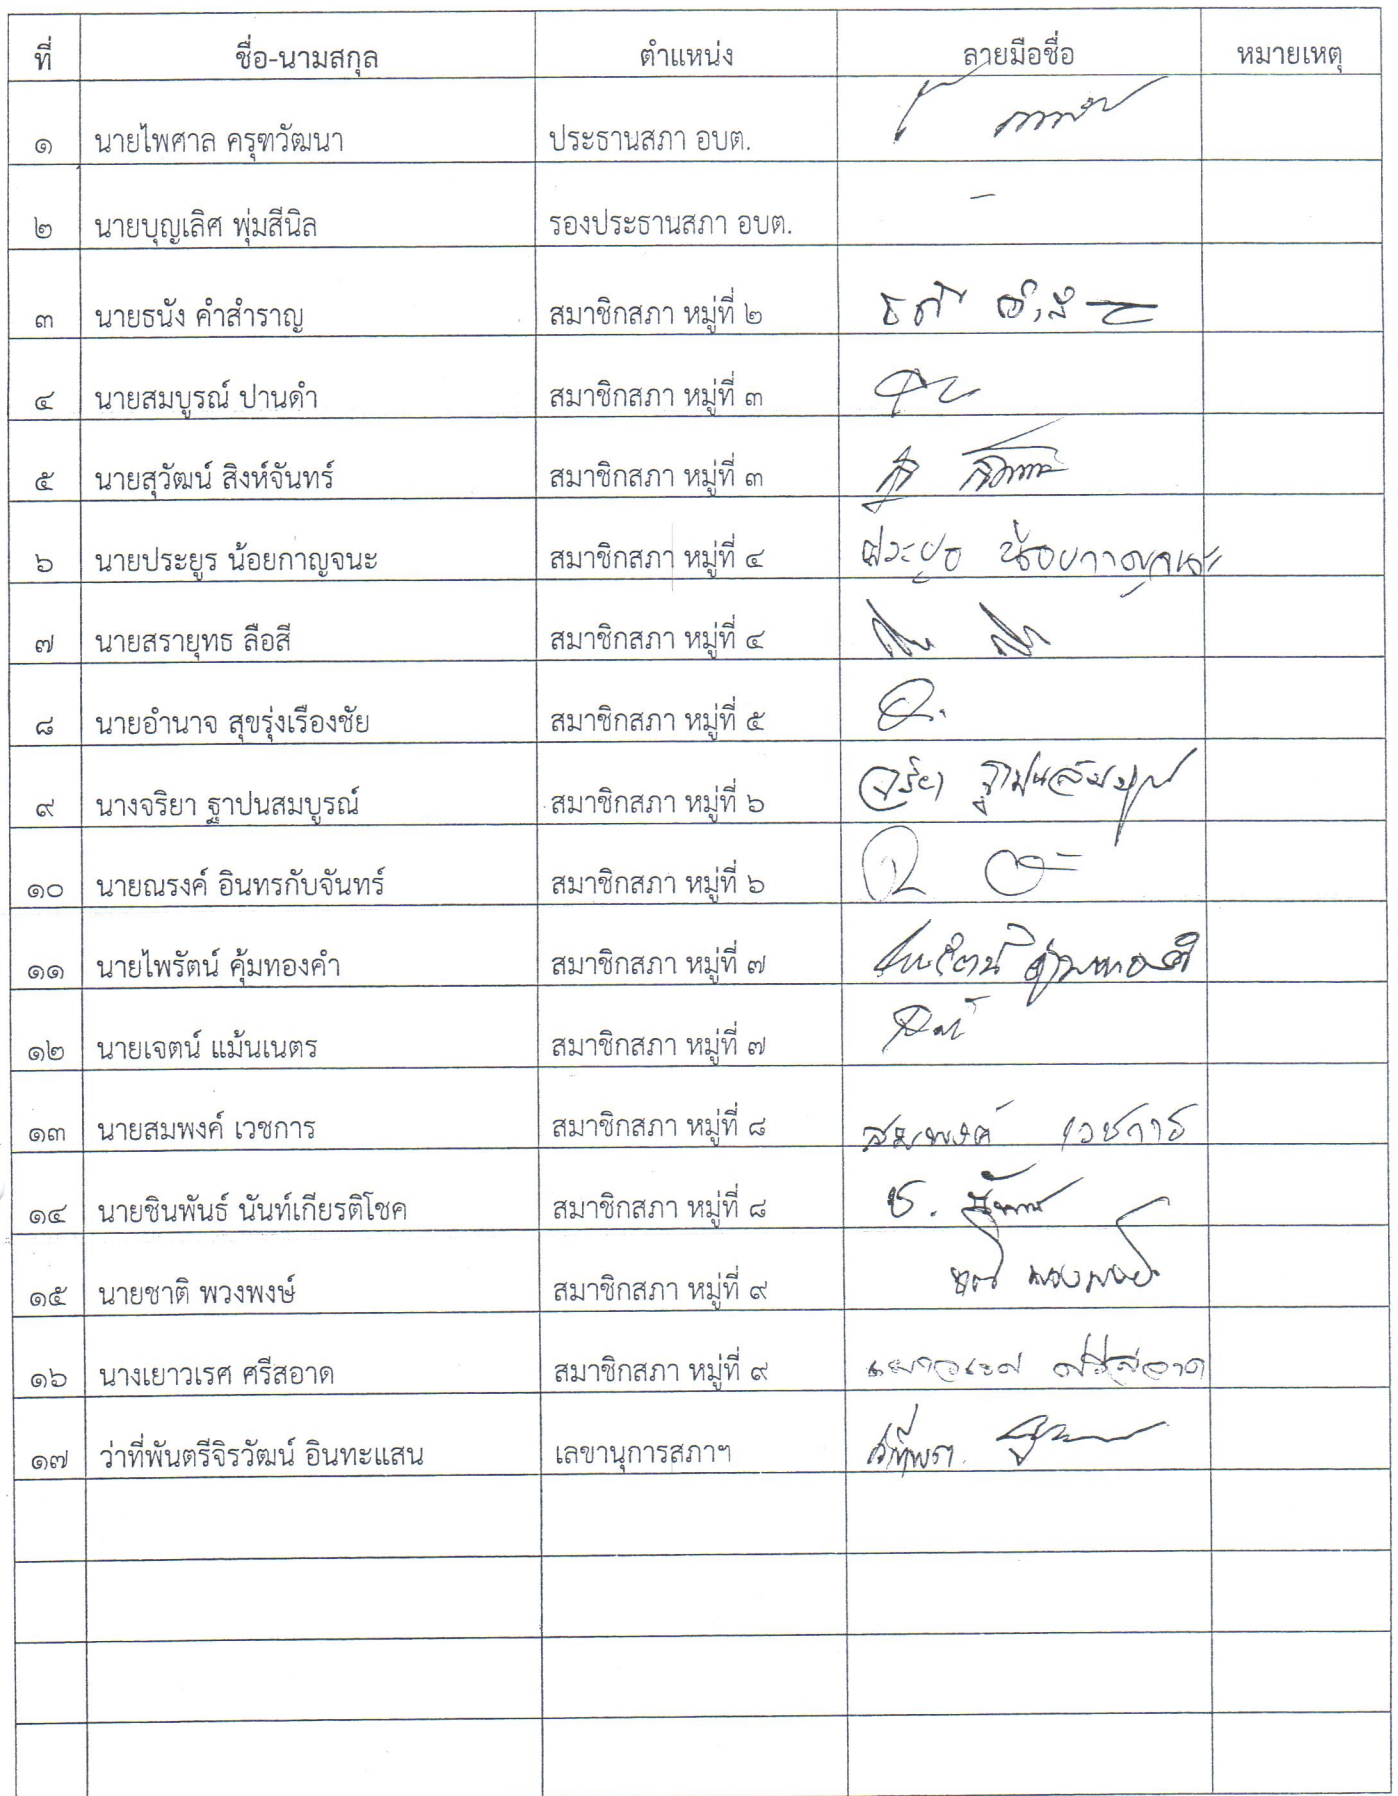 ที่ ชื่อ-นามสกุล ตำแหน่ง ลายมือชื่อ หมายเหตุ
๑ นายไพศาล ครุฑวัฒนา ประธานสภา อบต.
๒ นายบุญเลิศ พุ่มสีนิล รองประธานสภา อบต. -
๓ นายธนัง คำสำราญ สมาชิกสภา หมู่ที่ ๒
๔ นายสมบูรณ์ ปานดำ สมาชิกสภา หมู่ที่ ๓
๕ นายสุวัฒน์ สิงห์จันทร์ สมาชิกสภา หมู่ที่ ๓
๖ นายประยูร น้อยกาญจนะ สมาชิกสภา หมู่ที่ ๔ ประยูร น้อยกาญจนะ
๗ นายสรายุทธ ลือสี สมาชิกสภา หมู่ที่ ๔
๘ นายอำนาจ สุขรุ่งเรืองชัย สมาชิกสภา หมู่ที่ ๕
๙ นางจริยา ฐาปนสมบูรณ์ สมาชิกสภา หมู่ที่ ๖ จริยา ฐาปนสมบูรณ์
๑๐ นายณรงค์ อินทรกับจันทร์ สมาชิกสภา หมู่ที่ ๖
๑๑ นายไพรัตน์ คุ้มทองคำ สมาชิกสภา หมู่ที่ ๗ ไพรัตน์ คุ้มทองคำ
๑๒ นายเจตน์ แม้นเนตร สมาชิกสภา หมู่ที่ ๗
๑๓ นายสมพงค์ เวชการ สมาชิกสภา หมู่ที่ ๘ สมพงค์ เวชการ
๑๔ นายชินพันธ์ นันท์เกียรติโชค สมาชิกสภา หมู่ที่ ๘
๑๕ นายชาติ พวงพงษ์ สมาชิกสภา หมู่ที่ ๙
๑๖ นางเยาวเรศ ศรีสอาด สมาชิกสภา หมู่ที่ ๙ เยาวเรศ ศรีสอาด
๑๗ ว่าที่พันตรีจิรวัฒน์ อินทะแสน เลขานุการสภาฯ